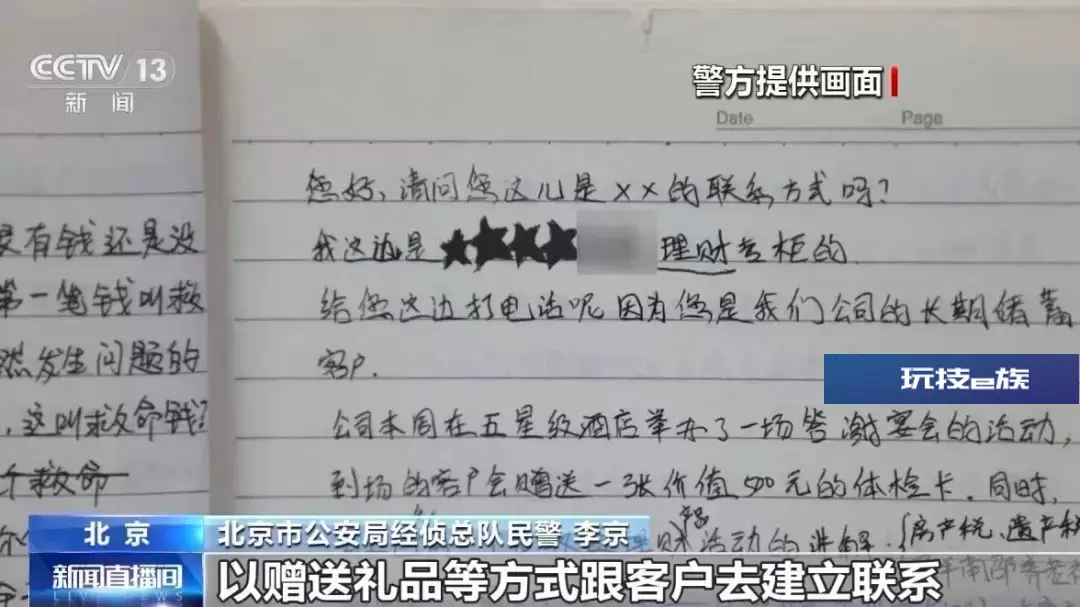 CCTV 13
新闻
警方提供画面
Date Page
您好,请问您这儿是××的联系方式吗?
我这边是 理财专柜的
给您这边打电话呢因为您是我们公司的长期储蓄
客户.
公司本周在五星级酒店举办了一场答谢宴会的活动,
到场的客户会赠送一张价值500元的体检卡.同时,
活动的讲解(房产税、遗产税
没有钱还是没
第一笔钱叫救
然发生问题的
,这叫救命钱
个救命
玩技e族
北京
北京市公安局经侦总队民警 李京
新闻直播间
LIVE NEWS
以赠送礼品等方式跟客户去建立联系